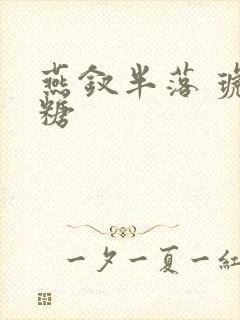 燕钗半落 琥
糖
一夕一夏一红